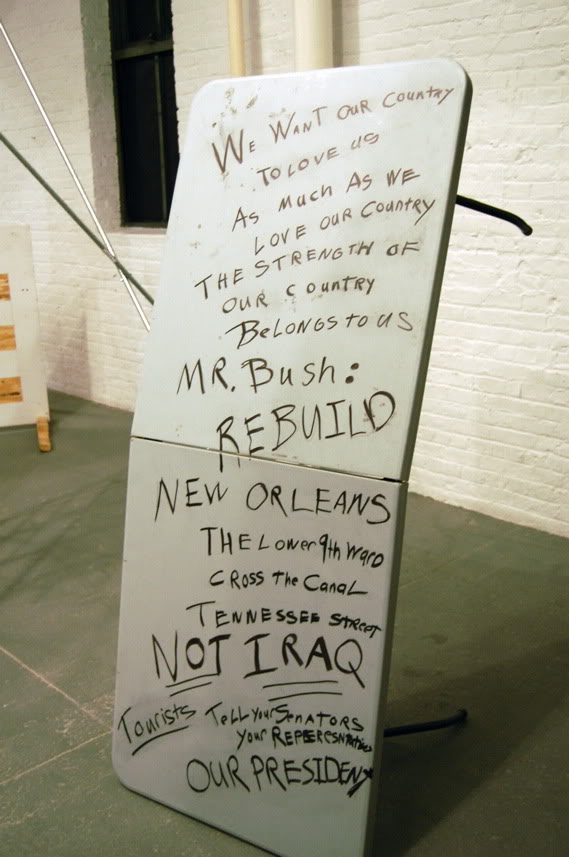 WE WANT OUR COUNTRY
TO LOVE US
AS MUCH AS WE
LOVE OUR COUNTRY
THE STRENGTH OF
OUR COUNTRY
BELONGS TO US
MR. Bush:
REBUILD
NEW ORLEANS
THE Lower 9th WARD
CROSS the CANAL
TENNESSEE STREET
NOT IRAQ
Tourists TELL Your SENATORS
your REPERESNtatives
OUR PRESIDENT